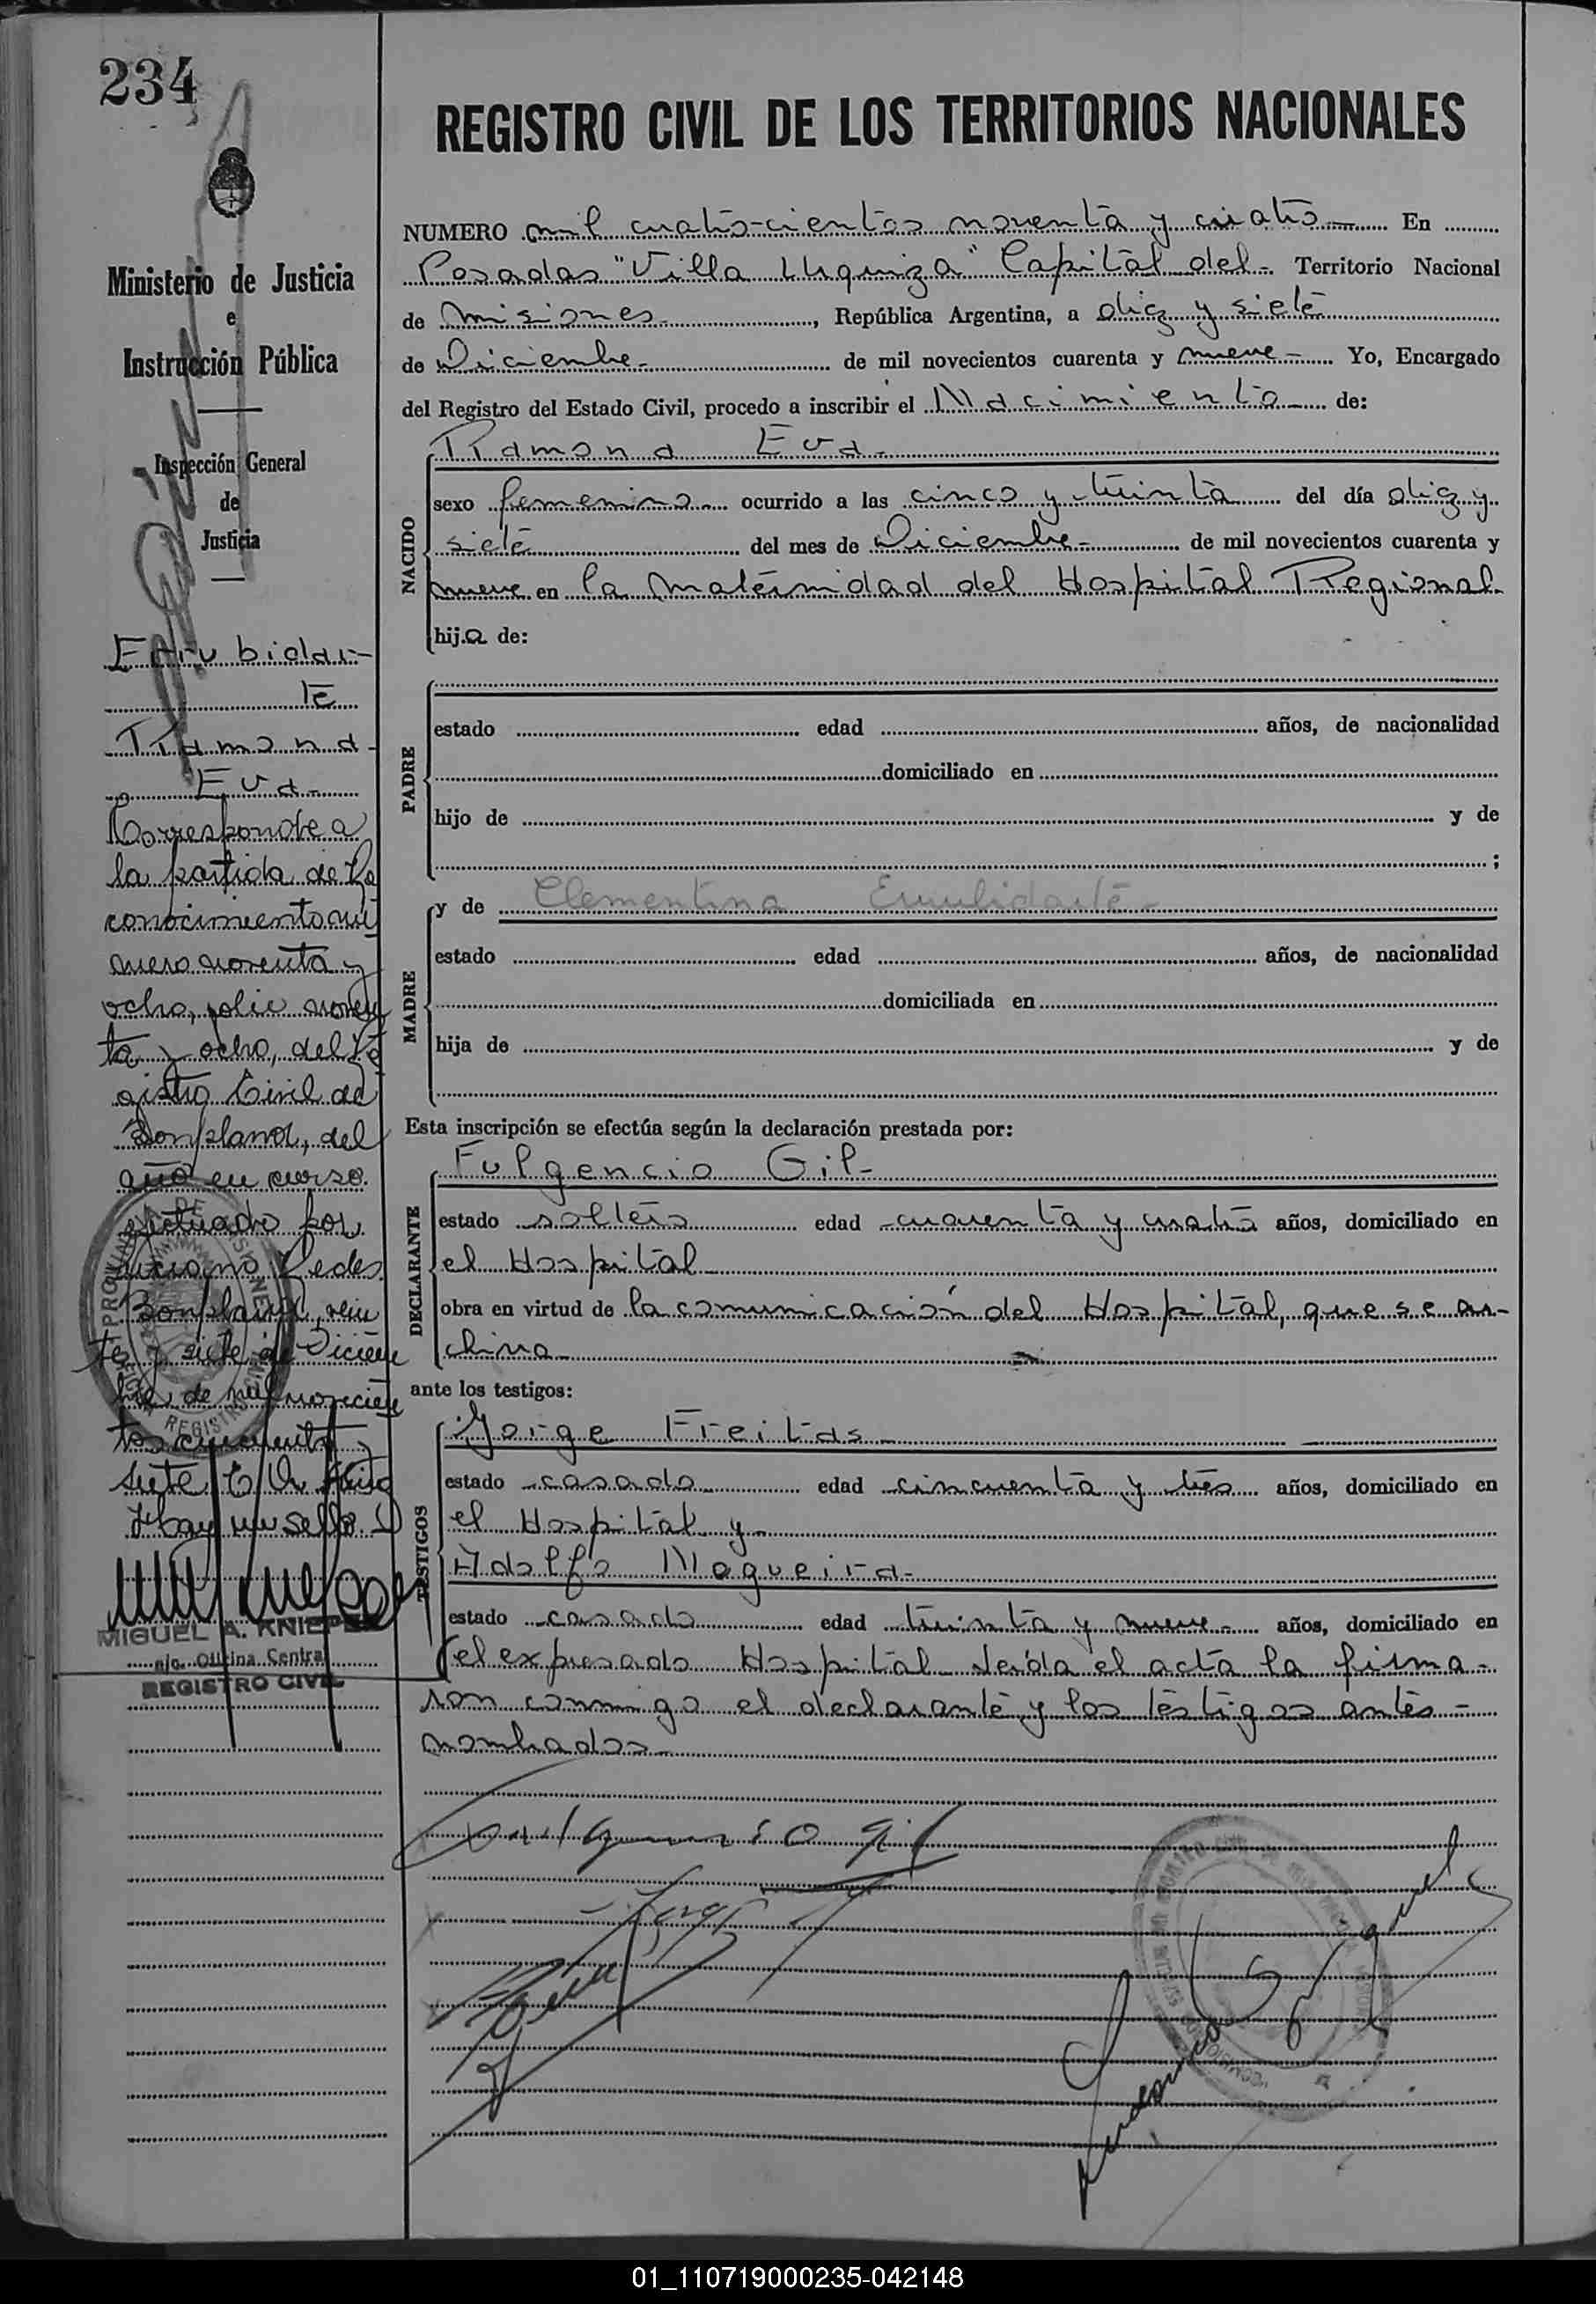 234
Ministerio de Justicia
e
Instrucción Pública
Inspección General
de
Justicia
Errubidar-
te
Ramona
Eva-
Corresponde a
la partida de Re
conocimiento nú
mero noventa y
ocho, folio noven
ta y ocho, del Re
gistro Civil de
Bonpland, del
año en curso
efectuado por
Ledes
Bonpland, vein
te y siete de Diciem
bre de mil novecien
tos cincuenta y
siete
Hay un sello
MIGUEL A. KNIEPE
a/c. Oficina Central
REGISTRO CIVIL
REGISTRO CIVIL DE LOS TERRITORIOS NACIONALES
NUMERO mil cuatro-cientos noventa y cuatro En
Posadas "Villa Urquiza" Capital del- Territorio Nacional
de Misiones, República Argentina, a diez y siete
de Diciembre- de mil novecientos cuarenta y nueve- Yo, Encargado
del Registro del Estado Civil, procedo a inscribir el Nacimiento de:
Ramona Eva-
NACIDO
sexo femenino ocurrido a las cinco y treinta del día diez y
siete del mes de Diciembre- de mil novecientos cuarenta y
nueve en la Maternidad del Hospital Regional.
hija de:
PADRE
estado edad años, de nacionalidad
domiciliado en
hijo de y de
;
MADRE
y de Clementina Errubidarte-
estado edad años, de nacionalidad
domiciliada en
hija de y de
Esta inscripción se efectúa según la declaración prestada por:
DECLARANTE
Fulgencio Gil-
estado soltero edad cuarenta y cuatro años, domiciliado en
el Hospital
obra en virtud de la comunicación del Hospital, que se ar-
chiva
ante los testigos:
TESTIGOS
Jorge Freitas-
estado casado edad cincuenta y tres años, domiciliado en
el Hospital y
Adolfo Nogueira-
estado casado edad treinta y nueve- años, domiciliado en
el expresado Hospital- Leída el acta la firma-
ron conmigo el declarante y los testigos antes-
nombrados-
Fulgencio Gil
01_110719000235-042148